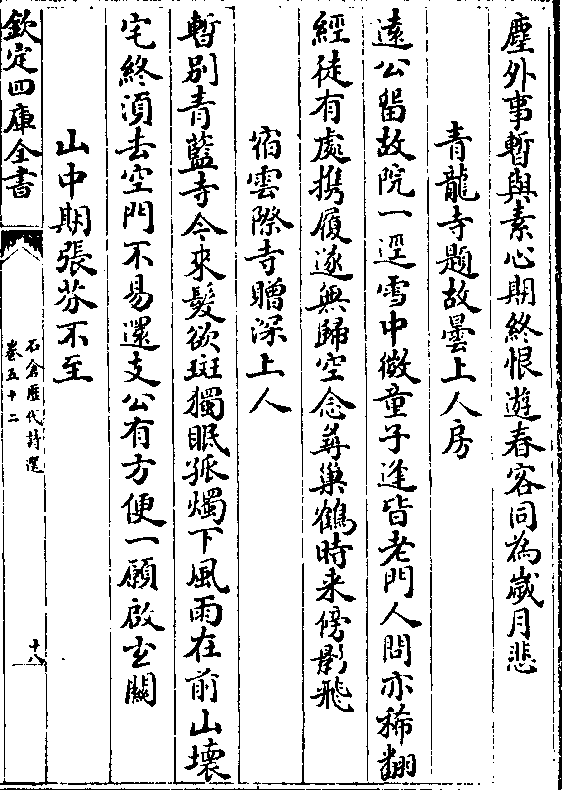 塵外事暫與素心期終恨遊春客同為嵗月悲
青龍寺題故曇上人房
遠公留故院一逕雪中微童子逢皆老門人問亦稀翻
經徒有處携履遂無歸空念尋巢鶴時来傍影飛
宿雲際寺贈深上人
暫別青藍寺今來髮欲斑獨眠孤燭下風雨在前山壊
宅終湏去空門不易還支公有方便一願啟玄關
山中期張芬不至
欽定四庫全書
石倉歴代詩選
卷五十二
十八